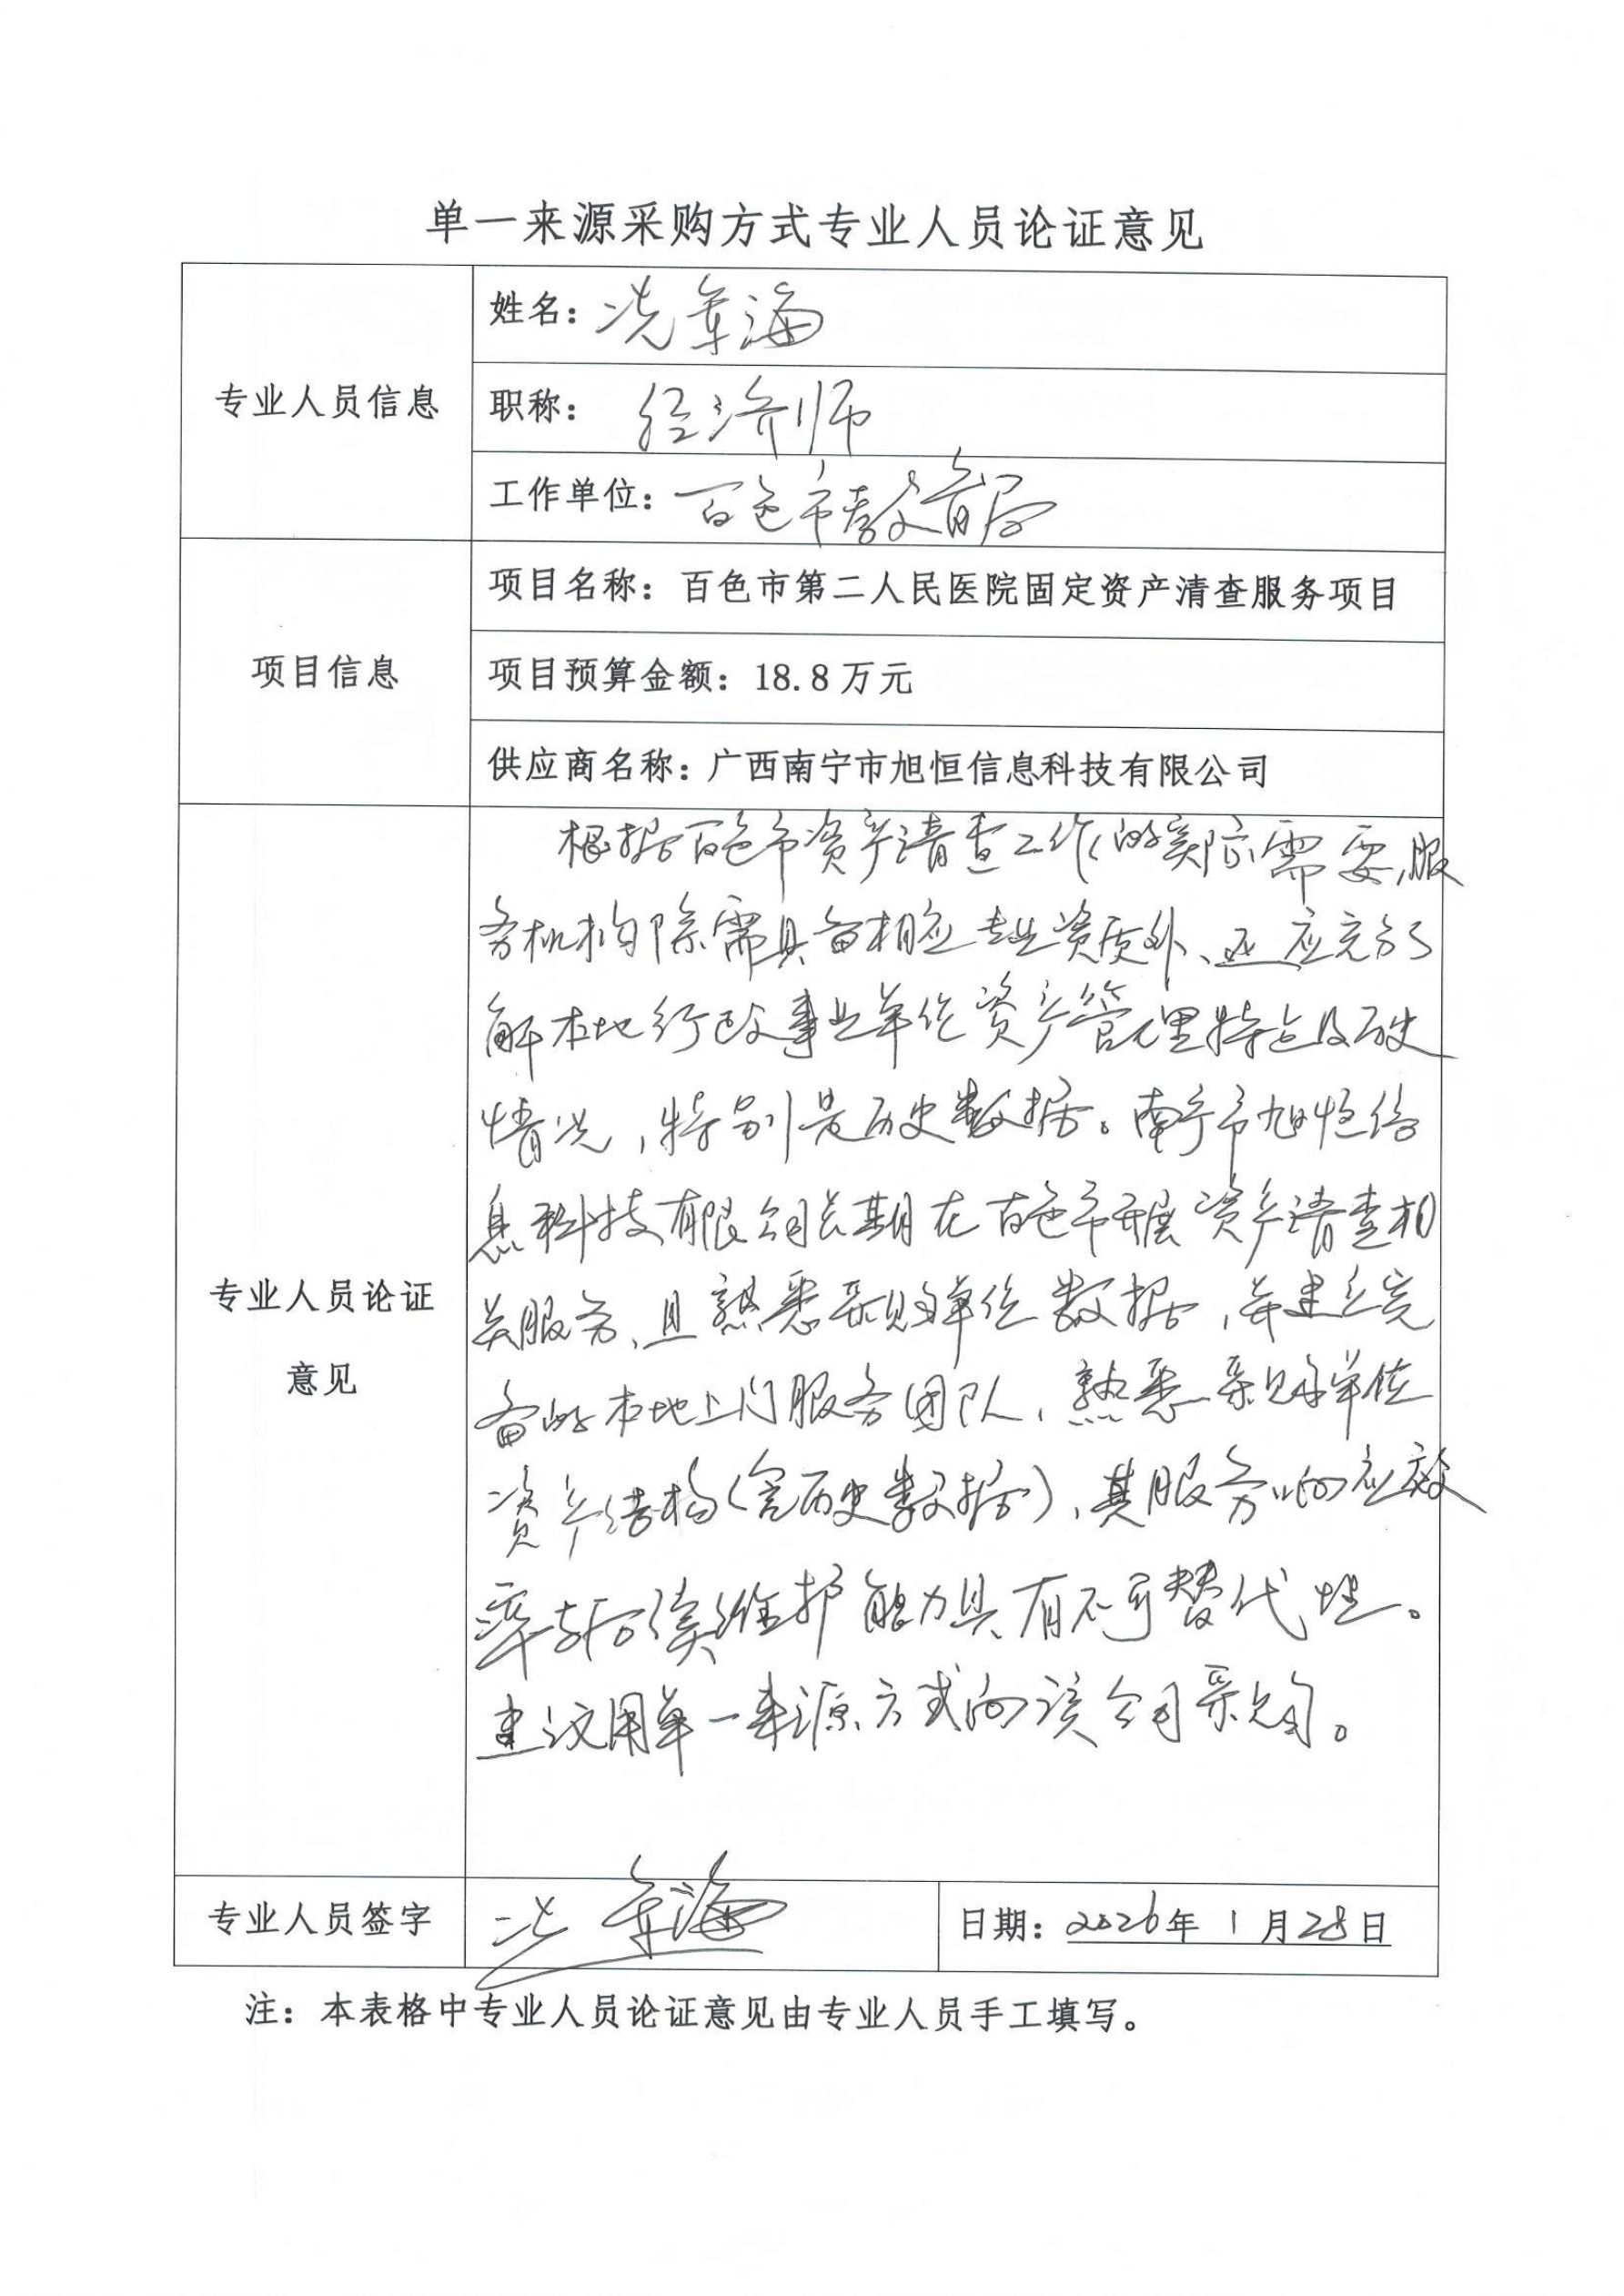 单一来源采购方式专业人员论证意见
专业人员信息
姓名：冼军海
职称：经济师
工作单位：百色市教育局
项目信息
项目名称：百色市第二人民医院固定资产清查服务项目
项目预算金额：18.8万元
供应商名称：广西南宁市旭恒信息科技有限公司
专业人员论证
意见
根据百色市资产清查工作的实际需要，服
务机构除需具备相应专业资质外、还应充分了
解本地行政事业单位资产管理特点及历史
情况，特别是历史数据。南宁市旭恒信
息科技有限公司长期在百色市开展资产清查相
关服务、且熟悉采购单位数据，并建立完
备的本地上门服务团队、熟悉采购单位
资产结构（含历史数据），其服务响应效
率与后续维护能力具有不可替代性。
建议用单一来源方式向该公司采购。
专业人员签字
冼军海
日期：2026年1月28日
注：本表格中专业人员论证意见由专业人员手工填写。